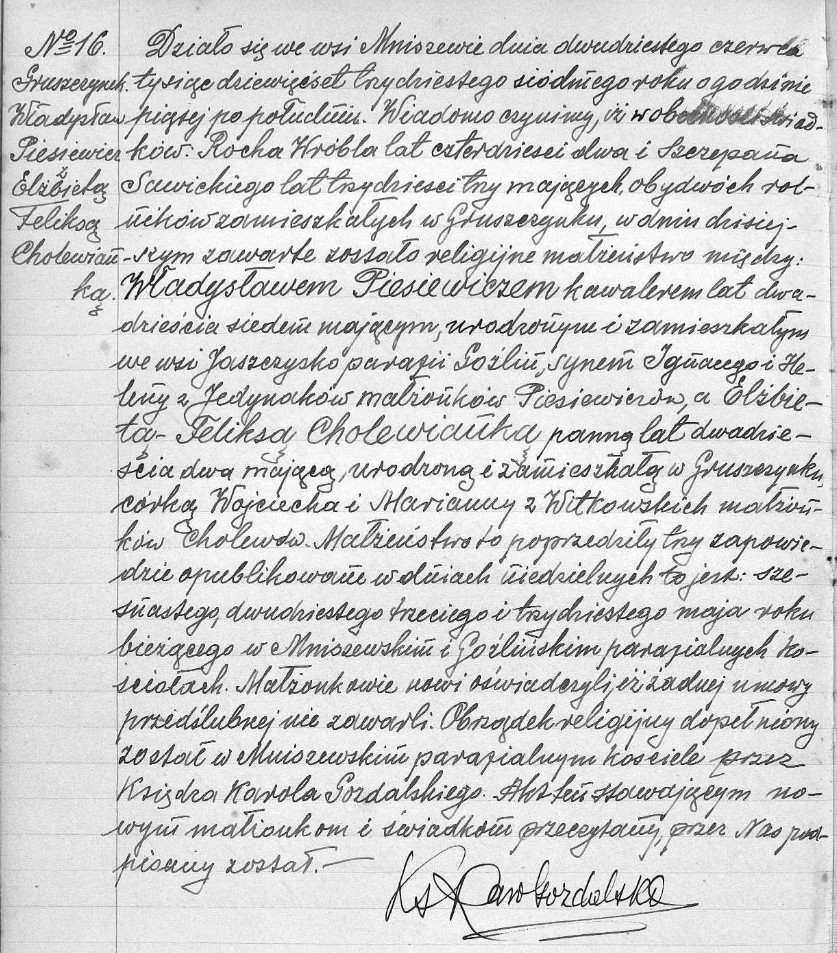 No 16.
Gruszczynek.
Władysław
Piesiewicz
z
Elżbietą
Feliksą
Cholewian̄-
ką.
Działo się we wsi Mniszewie dnia dwudziestego czerwca
tysiąc dziewięćset trzydziestego siódmego roku o godzinie
piątej po południu. Wiadomo czynimy, iż w obecności świad-
ków: Rocha Wróbla lat czterdzieści dwa i Szczepana
Sawickiego lat trzydzieści trzy mających, obydwóch rol-
ników zamieszkałych w Gruszczynku, w dniu dzisiej-
-szym zawarte zostało religijne małżeństwo między:
Władysławem Piesiewiczem kawalerem lat dwa-
dzieścia siedem mającym, urodzonym i zamieszkałym
we wsi Jaszczysko parafii Goźlin, synem Ignacego i He-
leny z Jedynaków małżonków Piesiewiczów, a Elżbie-
tą - Feliksą Cholewianką panną lat dwadzie-
ścia dwa mającą, urodzoną i zamieszkałą w Gruszczynku,
córką Wojciecha i Marianny z Witkowskich małżon-
ków Cholewów. Małżeństwo to poprzedziły trzy zapowie-
dzie opublikowane w dniach niedzielnych to jest: sze-
snastego, dwudziestego trzeciego i trzydziestego maja roku
bieżącego w Mniszewskim i Goźlińskim parafialnych koś-
ciołach. Małżonkowie nowi oświadczyli, iż żadnej umowy
przedślubnej nie zawarli. Obrządek religijny dopełniony
został w Mniszewskim parafialnym kościele przez
Księdza Karola Gozdalskiego. Akt ten stawającym no-
wym małżonkom i świadkom przeczytany, przez Nas pod-
pisany został. —
Ks Karol Gozdalski